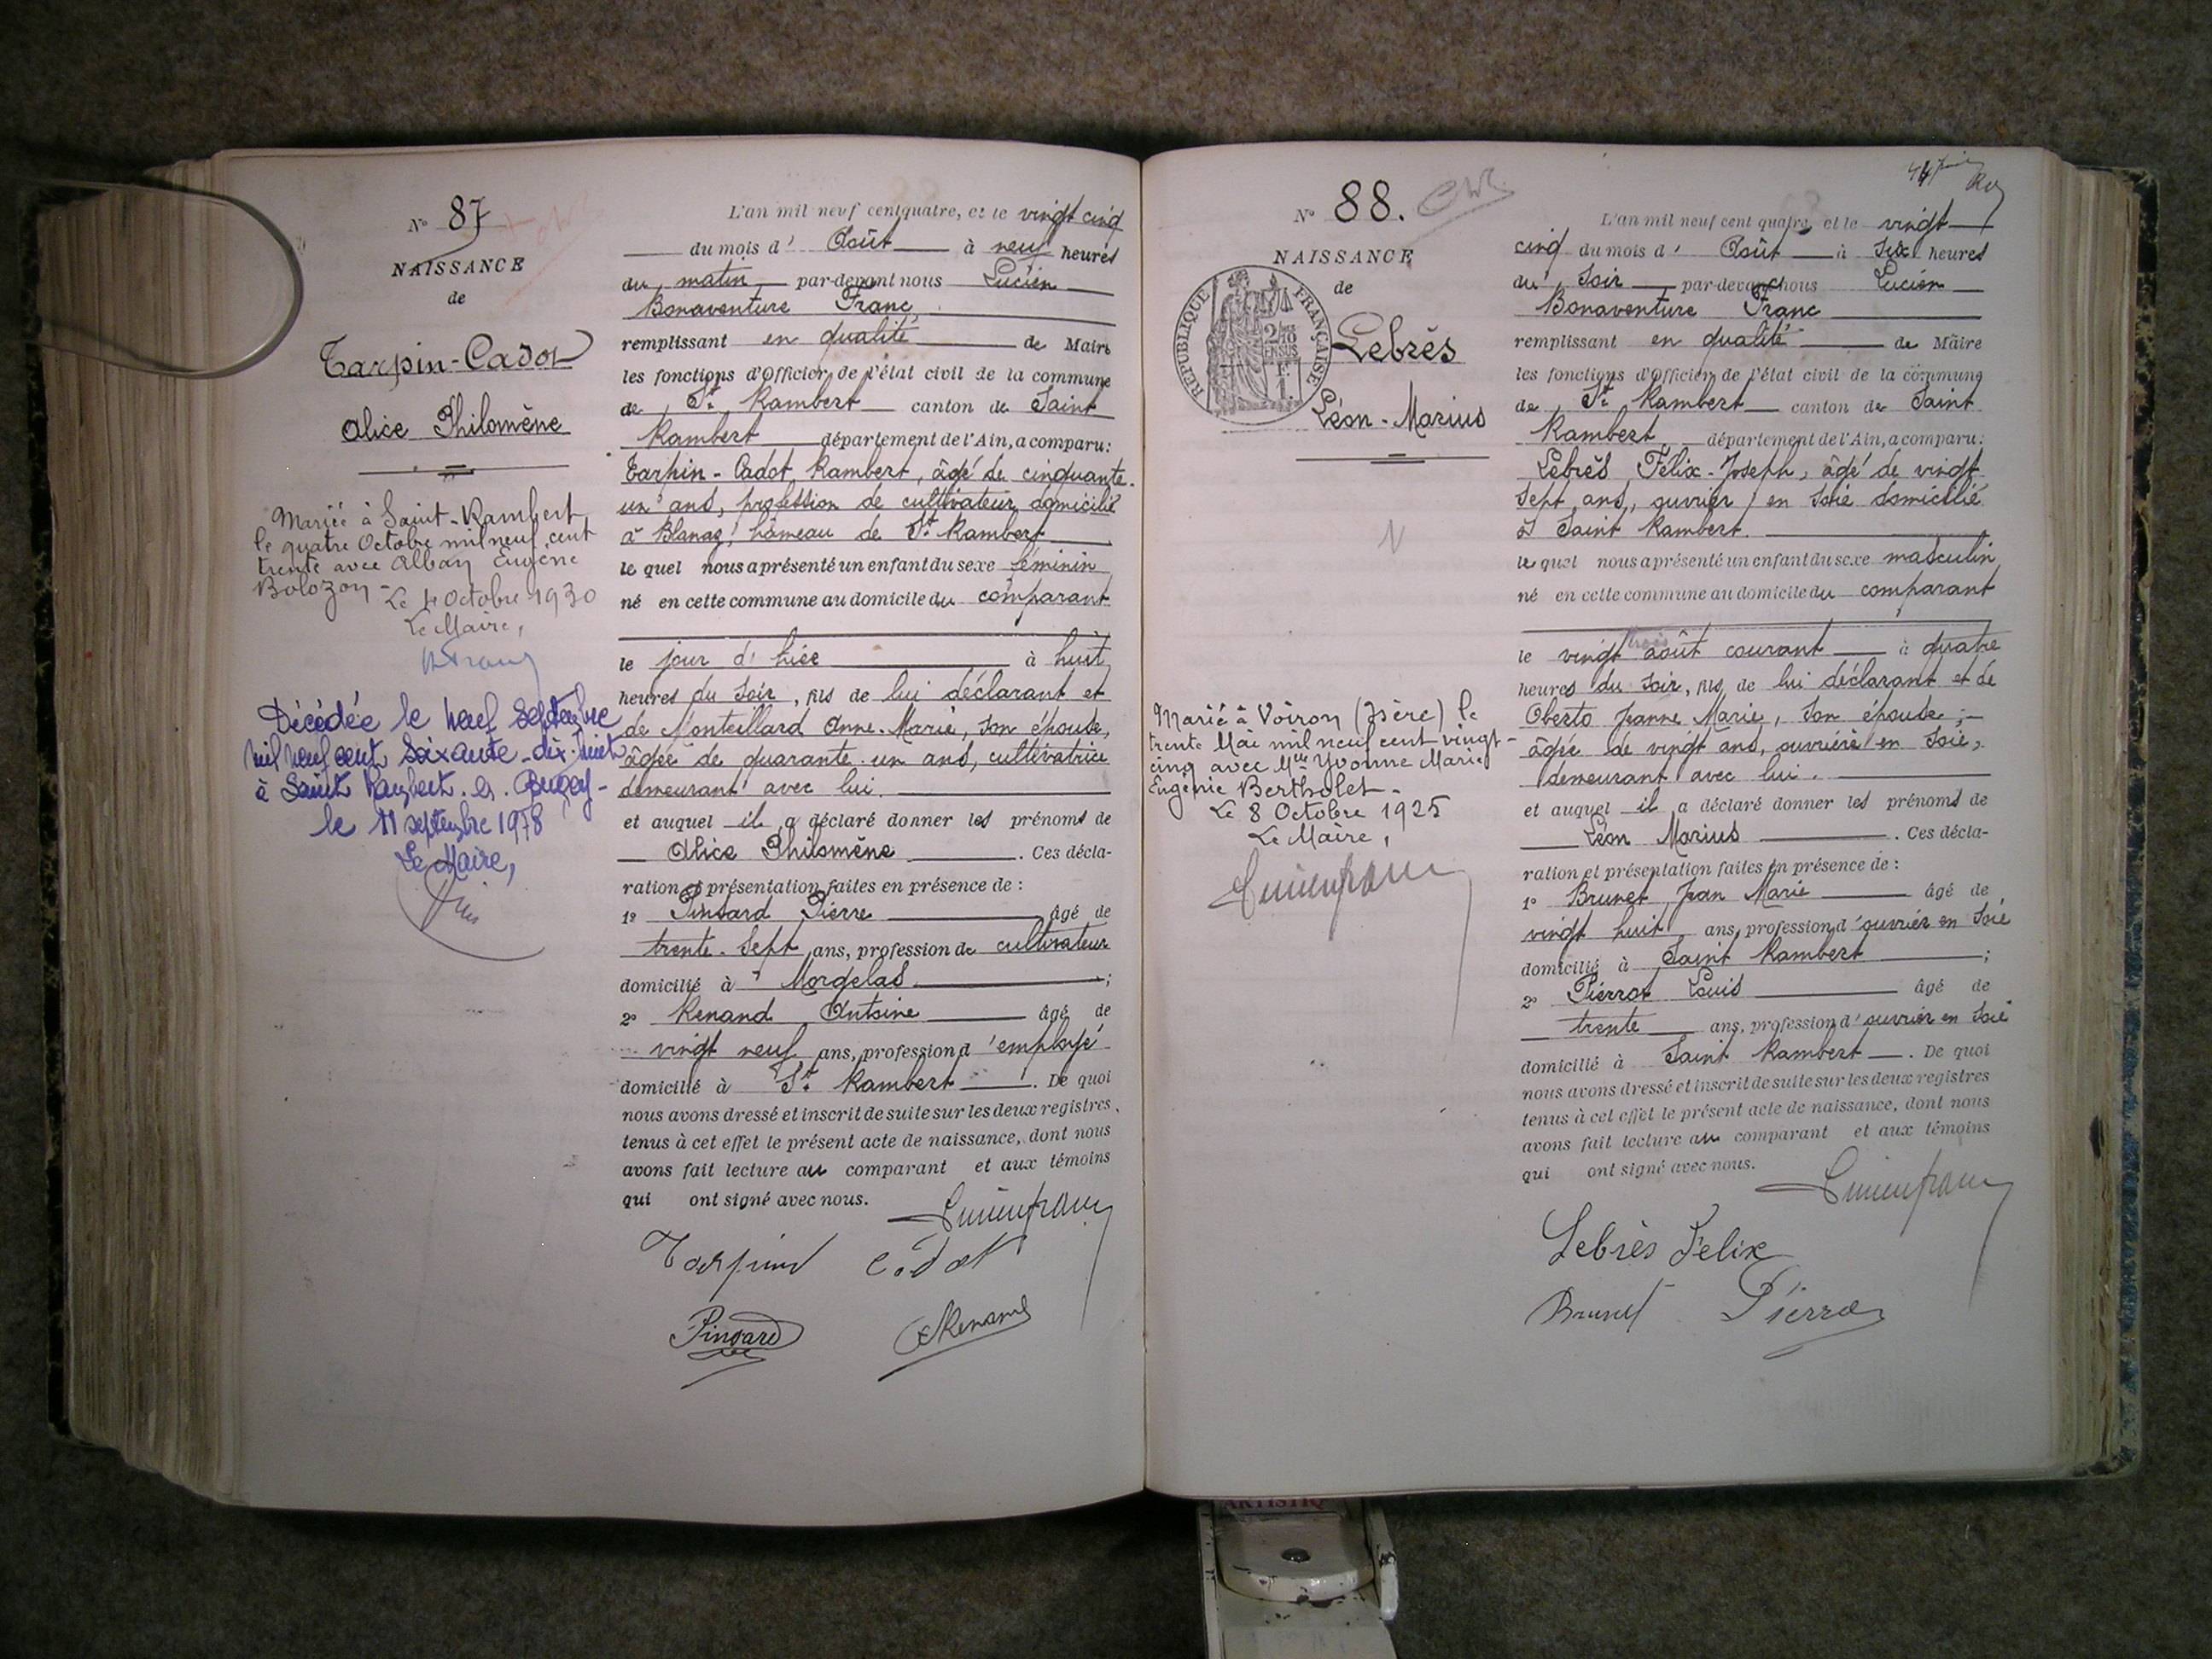 N° 87
NAISSANCE
de
Tarpin-Cadot
Alice Philomène
Mariée à Saint-Rambert
le quatre Octobre mil neuf cent
trente avec Alban Eugène
Bolozon -
Le 4 Octobre 1930
Le Maire,
Décédée le neuf Septembre
mil neuf cent soixante-dix-huit
à Saint Rambert-en-Bugey-
le 11 septembre 1978
Le Maire,
L'an mil neuf cent quatre, et le vingt cinq
du mois d' Août à neuf heures
du matin, par-devant nous Lucien
Bonaventure Franc,
remplissant en qualité de Maire
les fonctions d'Officier de l'état civil de la commune
de St. Rambert canton de Saint
Rambert département de l'Ain, a comparu:
Tarpin-Cadot Rambert, âgé de cinquante-
un ans, profession de cultivateur domicilié
à Blanaz, hâmeau de St. Rambert
le quel nous a présenté un enfant du sexe féminin
né en cette commune au domicile du comparant
le jour d'hier à huit
heures du soir, fils de lui déclarant et
de Monteillard Anne-Marie, son épouse,
âgée de quarante-un ans, cultivatrice
demeurant avec lui.
et auquel il a déclaré donner les prénoms de
Alice Philomène. Ces décla-
ration et présentation faites en présence de :
1° Pinsard Pierre âgé de
trente-sept ans, profession de cultivateur
domicilié à Morgelas ;
2° Renand Antoine âgé de
vingt neuf ans, profession d'employé
domicilié à St. Rambert. De quoi
nous avons dressé et inscrit de suite sur les deux registres
tenus à cet effet le présent acte de naissance, dont nous
avons fait lecture au comparant et aux témoins
qui ont signé avec nous.
Lucien Franc
Tarpin Cadot
Pinsard Renand
N° 88.
NAISSANCE
de
RÉPUBLIQUE FRANÇAISE
2/10 EN SUS
F.
1.
Lebrès
Léon-Marius
Marié à Voiron (Isère) le
trente Mai mil neuf cent vingt-
cinq avec Mlle Yvonne Marie
Eugénie Bertholet -
Le 8 Octobre 1925
Le Maire,
Lucien Franc
L'an mil neuf cent quatre, et le vingt
cinq du mois d' Août à six heures
du soir par-devant nous Lucien
Bonaventure Franc
remplissant en qualité de Maire
les fonctions d'Officier de l'état civil de la commune
de St. Rambert canton de Saint
Rambert département de l'Ain, a comparu:
Lebrès Félix-Joseph, âgé de vingt
sept ans, ouvrier en soie domicilié
à Saint Rambert.
le quel nous a présenté un enfant du sexe masculin
né en cette commune au domicile du comparant
le vingt trois août courant à quatre
heures du soir, fils de lui déclarant et de
Oberto Jeanne Marie, son épouse,
âgée de vingt ans, ouvrière en soie,
demeurant avec lui.
et auquel il a déclaré donner les prénoms de
Léon Marius. Ces décla-
ration et présentation faites en présence de :
1° Brunet Jean Marie âgé de
vingt huit ans, profession d'ouvrier en soie
domicilié à Saint Rambert ;
2° Pierrot Louis âgé de
trente ans, profession d'ouvrier en soie
domicilié à Saint Rambert. De quoi
nous avons dressé et inscrit de suite sur les deux registres
tenus à cet effet le présent acte de naissance, dont nous
avons fait lecture au comparant et aux témoins
qui ont signé avec nous.
Lucien Franc
Lebrès Félix
Brunet Pierrot
ARTISTIQ